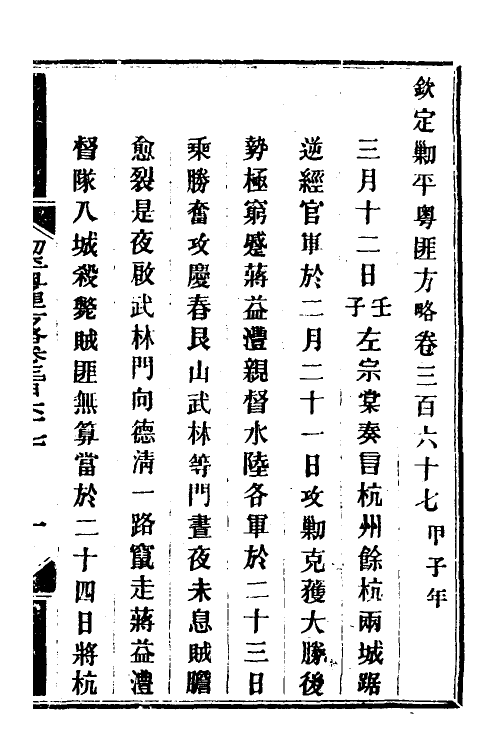 欽定勦平粵匪方略卷三百六十七 甲子年
三月十二日壬子左宗棠奏言杭州餘杭兩城踞
逆經官軍於二月二十一日攻勦克獲大勝後
勢極窮蹙蔣益澧親督水陸各軍於二十三日
乘勝奮攻慶春艮山武林等門晝夜未息賊膽
愈裂是夜啟武林門向德清一路竄走蔣益澧
督隊入城殺斃賊匪無算當於二十四日將杭